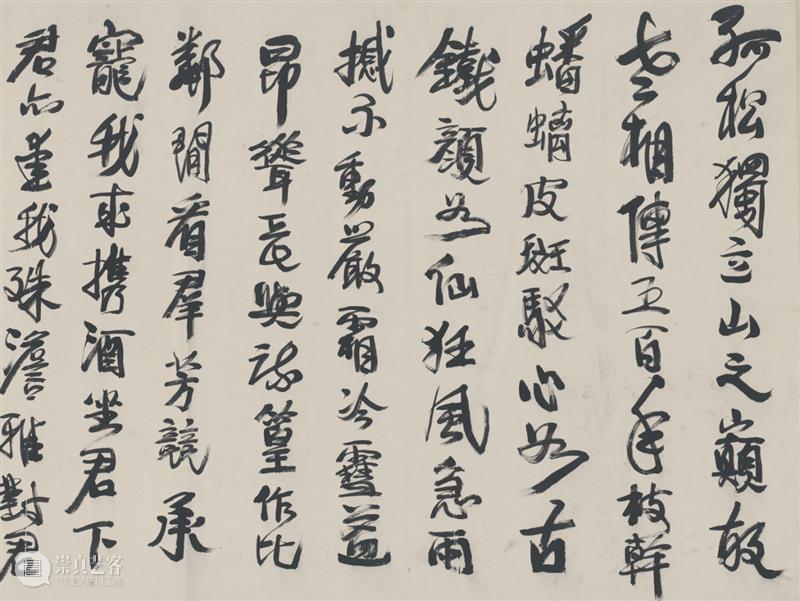 孤松獨立山之巔故
老相傳五百年枝幹
蟠螭皮斑駁心如古
鐵顏如仙狂風急雨
撼不動嚴霜冷雪益
昂聳長與疏篁作比
鄰閒看羣芳競承
寵我來攜酒坐君下
君亦我殊澹雅對君
崇真艺客
TRUEART.COM